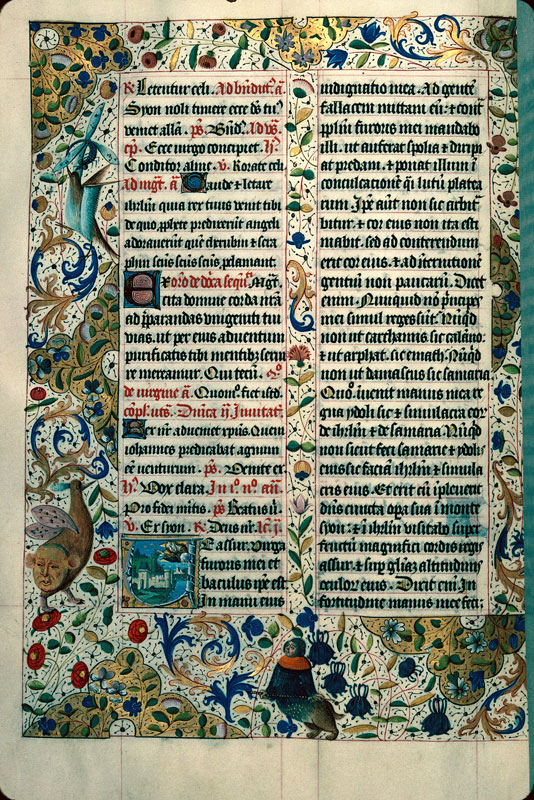 ℟ Letentur celi. Ad bn̄dict̄. a̅
Syon noli timere ecce de᷒ tu᷒
veniet alla̅. ps̄. Bn̄d᷒. Ad vs̄.
cp̄. Ecce virgo concipiet. h᷒.
Conditor alme. v̄. Rorate celi
Ad mgt̄. a̅ Gaude ⁊ letare
ihrlm̄ quia rex tuus venit tibi
de quo p̄phete predixerūt angeli
adoraverūt que̅ cherubin ⁊ sera
phin sc̄us sc̄us sc̄us p̄clamant
Excita domine corda nr̄a
ad p̄parandas unigeniti tui
vias. ut per eius adventum
purificatis tibi mentib᷒ servi
re mereamur. Qui tecū.
de virgine a̅. Quomo᷒. fiet isto᷒.
Ber nr̄. adveniet xp̄us. Quem
iohannes predicabat agnum
ee̅ venturum. ps̄. Venite ex
h᷒. Vox clara. In i᷒. n᷒. an̄.
Pro fidei meritis. ps̄ Beatus v̄.
v̄. Ex syon. ℟. Deus nr̄. lc̄. i᷒
Ve assur. virga
furoris mei et
baculus ip̄e est
in manu eius
indignatio mea. Ad gente̅
fallacem mittam eū. ⁊ cont̄
pplm̄ furoris mei mandabo
illi. ut auferat spolia ⁊ diripi
at predam. ⁊ ponat illum ī
conculcatione̅ q̄si lutū platea
rum. Ip̄e aūt non sic arbit̄
bitur. ⁊ cor eius non ita esti
mabit. sed ad conterendum
erit cor eius. ⁊ ad īterutione̅
gentiū non paucarū. Dicet
enim. Nunquid nō p̄ncipes
mei simul reges sūt. Nūqd
non ut carchamis sic calano.
⁊ ut arphat. sic emath. Nūqd
non ut damascus sic samaria
Quo᷒. īvenit manus mea re
gna ydoli sic ⁊ simulacra eor᷒
de ihrlm̄ ⁊ de samaria. Nūqd
non sicut feci samarie ⁊ ydolis
eius sic facia̅ ihrlm̄ ⁊ simula
cris eius. Et erit cū īpleverit
dn̄s cuncta opa sua ī monte
syon. ⁊ ī ihrlm̄ visitabo super
fructū magnifici cordis regis
assur. ⁊ sup̄ gl̄iaz altitudinis
oculor᷒ eius. Dixit eni̅ In
fortitudine manus mee feci;